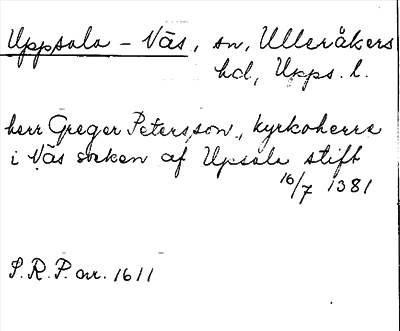 Uppsala – Näs, sn, Ulleråkers
hd, Upps. l.
herr Greger Petersson, kyrkoherre
i Näs socken af Upsala stift
16/7 1381
S.R.P. nr. 1611